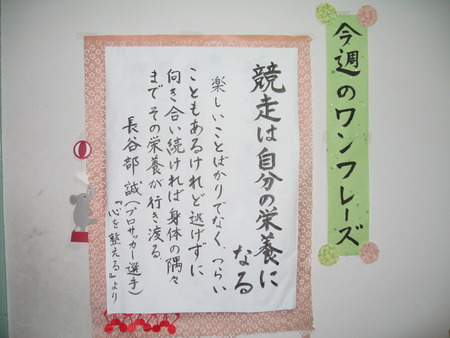 今週のワンフレーズ
競走は自分の栄養に
なる
楽しいことばかりでなく、つらい
こともあるけれど逃げずに
向き合い続ければ身体の隅々
までその栄養が行き渡る。
長谷部誠(プロサッカー選手)
『心を整える』より